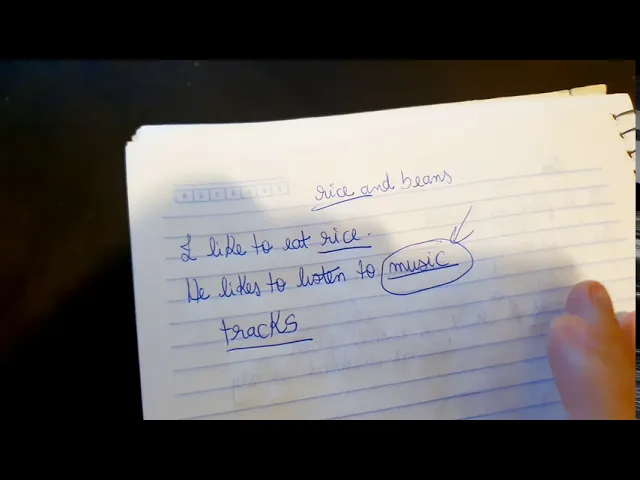 rice and beans
I like to eat rice.
He likes to listen to music
tracks